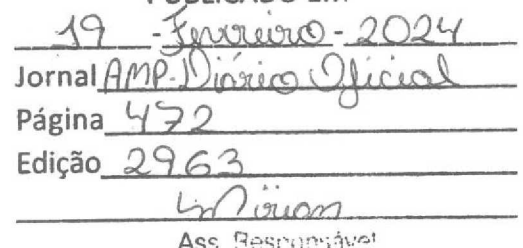 PUBLICADO EM
19 - Fevereiro - 2024
Jornal AMP-Diário Oficial
Página 472
Edição 2963
Mirian
Ass. Responsável